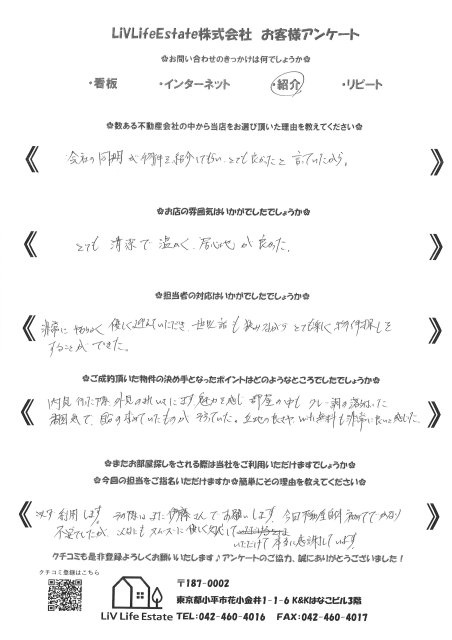 LiVLifeEstate株式会社 お客様アンケート
✿お問い合わせのきっかけは何でしょうか✿
・看板 ・インターネット ・紹介 ・リピート
✿数ある不動産会社の中から当店をお選び頂いた理由を教えてください✿
会社の同期が物件を紹介してもらい、とても良かったと言っていたから。
✿お店の雰囲気はいかがでしたでしょうか✿
とても清潔で温かく、居心地が良かった。
✿担当者の対応はいかがでしたでしょうか✿
非常に 優しく 世間話も とても楽しく お部屋探しを
することができた。
✿ご成約頂いた物件の決め手となったポイントはどのようなところでしたでしょうか✿
内見 行った際 外見の 魅力を感じ 部屋の中も グレー調の落ち着いた
雰囲気で、自分の求めていたものが そろっていた。立地の良さや Wifi無料も非常に良いと感じた。
✿またお部屋探しをされる際は当社をご利用いただけますでしょうか✿
✿今回の担当をご指名いただけますか✿簡単にその理由を教えてください✿
利用します。その際はまた伊藤さんでお願いします。今回不動産 初めてで
不安でしたが、 スムーズに優しく対応して
いただけて 本当に感謝しています。
クチコミも是非登録よろしくお願いいたします♪アンケートのご協力、誠にありがとうございました！
クチコミ登録はこちら
LiV Life Estate
〒187-0002
東京都小平市花小金井1-1-6 K&Kはなこビル3階
TEL:042-460-4016 FAX:042-460-4017